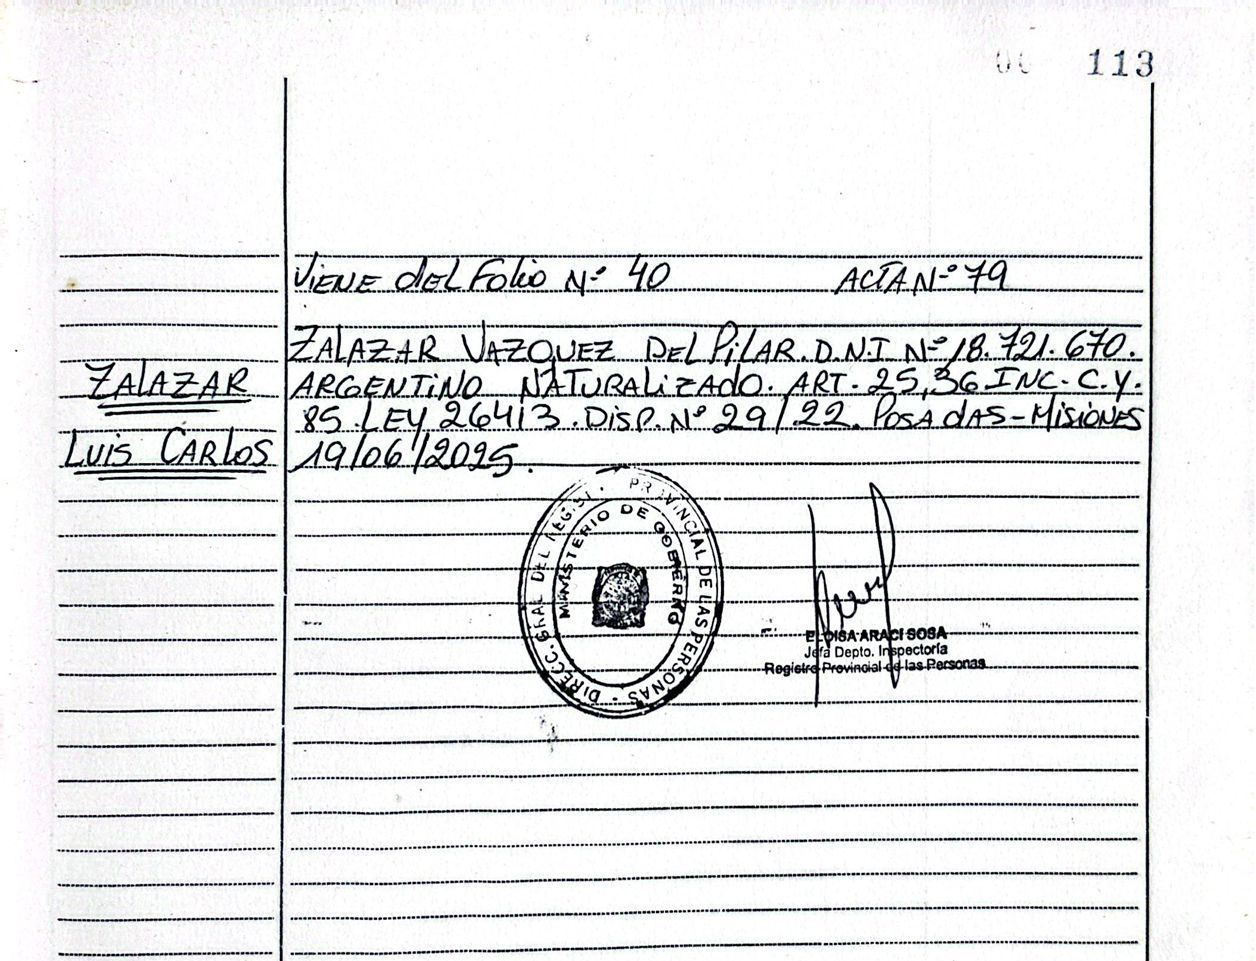 113
Viene del Folio Nº 40 ACTA Nº 79
ZALAZAR VAZQUEZ DEL PILAR. D.N.I Nº 18.721.670.
ZALAZAR
ARGENTINO NATURALIZADO. ART. 25,36 INC. C. Y.
85. LEY 26413. DISP. Nº 29/22. POSADAS-MISIONES
LUIS CARLOS
19/06/2025.
DIRECC. GRAL DEL REGIST. PROVINCIAL DE LAS PERSONAS
MINISTERIO DE GOBIERNO
ELOISA ARACI SOSA
Jefa Depto. Inspectoría
Registro Provincial de las Personas